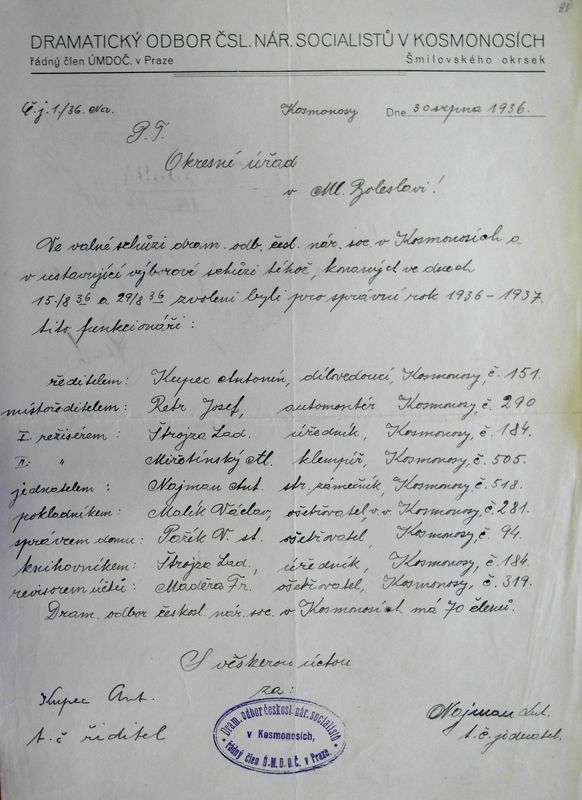 DRAMATICKÝ ODBOR ČSL. NÁR. SOCIALISTŮ V KOSMONOSÍCH
řádný člen ÚMDOČ. v Praze Šmilovského okrsek
Č.j. 1/36. Na. Kosmonosy Dne 30 srpna 1936.
P.T.
Okresní úřad
v Ml. Boleslavi!
Ve valné schůzi dram. odb. česl. nár. soc. v Kosmonosích a
v ustavující výborové schůzi téhož, konaných ve dnech
15./8 36 a 29/8 36 zvoleni byli pro správní rok 1936 – 1937.
tito funkcionáři:
ředitelem: Kupec Antonín, dílovedoucí, Kosmonosy, č. 151.
místořěditelem: Retr Josef, automontér Kosmonosy, č. 290
I. režisérem: Štrojza Lad. úředník, Kosmonosy, č. 184.
II. " Mirotínský Al. klempíř, Kosmonosy, č. 505.
jednatelem: Najman Ant. str. zámečník, Kosmonosy, č. 518.
pokladníkem: Malík Václav, ošetřovatel, v.v. Kosmonosy, č. 281.
správcem domu: Pařík V. st. ošetřovatel, Kosmonosy, č. 94.
knihovníkem: Štrojza Lad., úředník, Kosmonosy, č. 184
revisorem účtů: Maděra Fr. ošetřovatel, Kosmonosy, č. 319.
Dram. odbor českosl. nár. soc. v Kosmonosích má 70 členů.
S věškerou úctou
za:
Kupec Ant.
t. č řiditel
Najman Ant.
t. č. jednatel.
Dram. odbor českosl. nár. socialistů
v Kosmonosích,
řádný člen Ú.M.D.O.Č. v Praze.